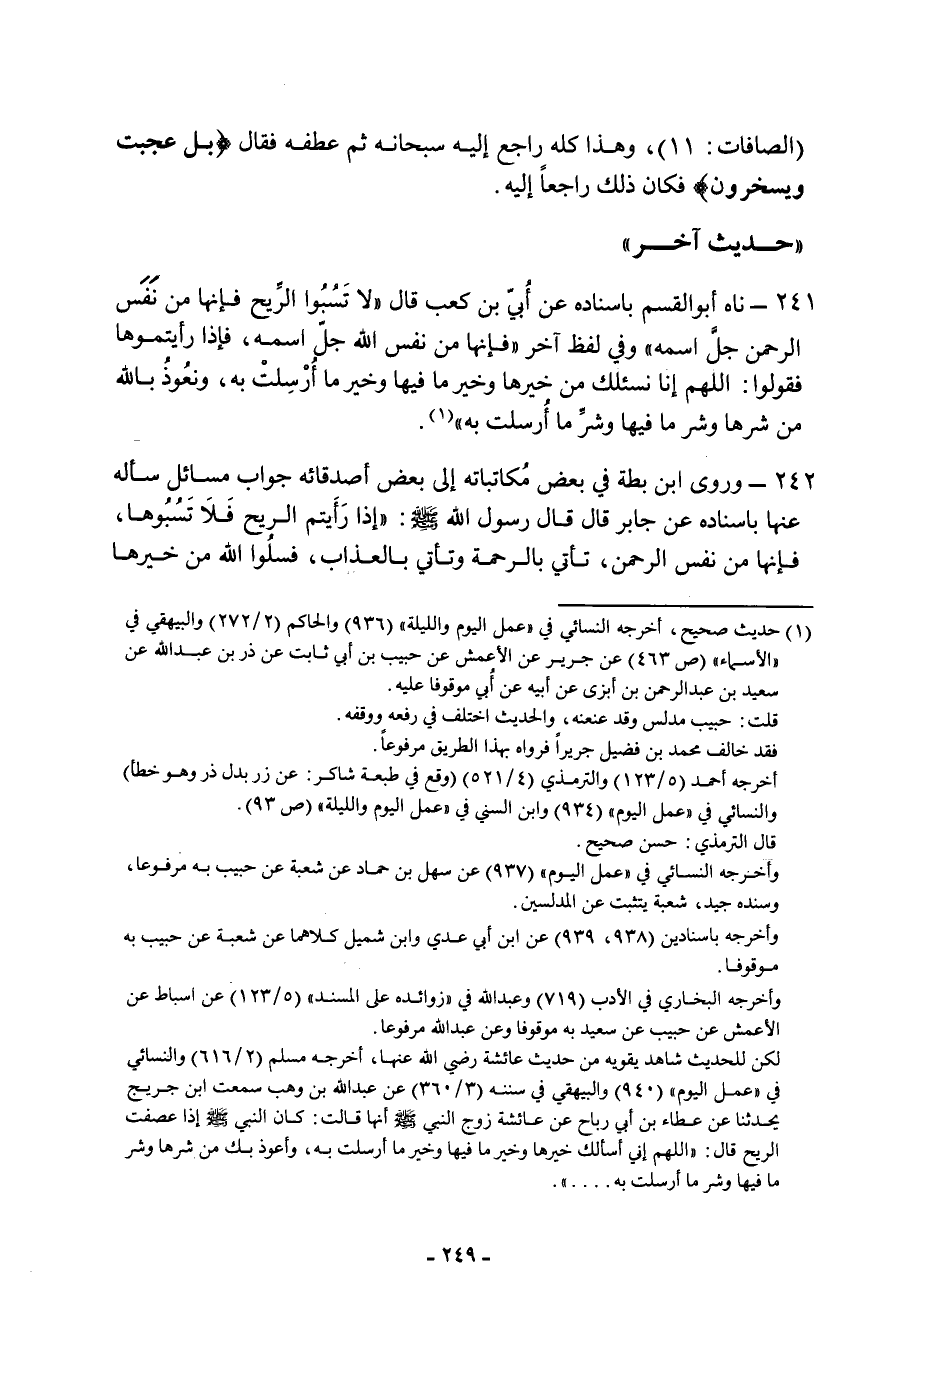 (الصافات: ١١)، وهذا كله راجع إليه سبحانه ثم عطفه فقال ﴿بل عجبت
ويسخرون﴾ فكان ذلك راجعاً إليه.
«حديث آخر»
٢٤١ – ناه أبوالقسم باسناده عن أُبيّ بن كعب قال «لا تَسُبُّوا الرِّيح فإنها من نَفَس
الرحمن جلَّ اسمه» وفي لفظ آخر «فإنها من نفس الله جلّ اسمه، فإذا رأيتموها
فقولوا: اللهم إنا نسئلك من خيرها وخير ما فيها وخير ما أُرْسِلتْ به، ونعُوذُ بالله
من شرها وشر ما فيها وشرِّ ما أُرسلت به»(١).
٢٤٢ – وروى ابن بطة في بعض مُكاتباته إلى بعض أصدقائه جواب مسائل سأله
عنها باسناده عن جابر قال قال رسول الله ﷺ: «إذا رَأَيتم الريح فَلَا تَسُبُوها،
فإنها من نفس الرحمن، تأتي بالرحمة وتأتي بالعذاب، فسلُوا الله من خيرها
(١) حديث صحيح، أخرجه النسائي في «عمل اليوم والليلة» (٩٣٦) والحاكم (٢٧٢/٢) والبيهقي في
«الأسماء» (ص ٤٦٣) عن جرير عن الأعمش عن حبيب بن أبي ثابت عن ذر بن عبدالله عن
سعيد بن عبدالرحمن بن أبزى عن أبيه عن أبي موقوفا عليه.
قلت: حبيب مدلس وقد عنعنه، والحديث اختلف في رفعه ووقفه.
فقد خالف محمد بن فضيل جريراً فرواه بهذا الطريق مرفوعاً.
أخرجه أحمد (١٢٣/٥) والترمذي (٥٢١/٤) (وقع في طبعة شاكر: عن زر بدل ذر وهو خطأ)
والنسائي في «عمل اليوم» (٩٣٤) وابن السني في «عمل اليوم والليلة» (ص ٩٣).
قال الترمذي: حسن صحيح.
وأخرجه النسائي في «عمل اليوم» (٩٣٧) عن سهل بن حماد عن شعبة عن حبيب به مرفوعا،
وسنده جيد، شعبة يتثبت عن المدلسين.
وأخرجه باسنادين (٩٣٨، ٩٣٩) عن ابن أبي عدي وابن شميل كلاهما عن شعبة عن حبيب به
موقوفا.
وأخرجه البخاري في الأدب (٧١٩) وعبدالله في «زوائده على المسند» (١٢٣/٥) عن اسباط عن
الأعمش عن حبيب عن سعيد به موقوفا وعن عبدالله مرفوعا.
لكن للحديث شاهد يقويه من حديث عائشة رضي الله عنها، أخرجه مسلم (٦١٦/٢) والنسائي
في «عمل اليوم» (٩٤٠) والبيهقي في سننه (٣٦٠/٣) عن عبدالله بن وهب سمعت ابن جريج
يحدثنا عن عطاء بن أبي رباح عن عائشة زوج النبي ﷺ أنها قالت: كان النبي ﷺ إذا عصفت
الريح قال: «اللهم إني أسألك خيرها وخير ما فيها وخير ما أرسلت به، وأعوذ بك من شرها وشر
ما فيها وشر ما أرسلت به....».
- ٢٤٩ -